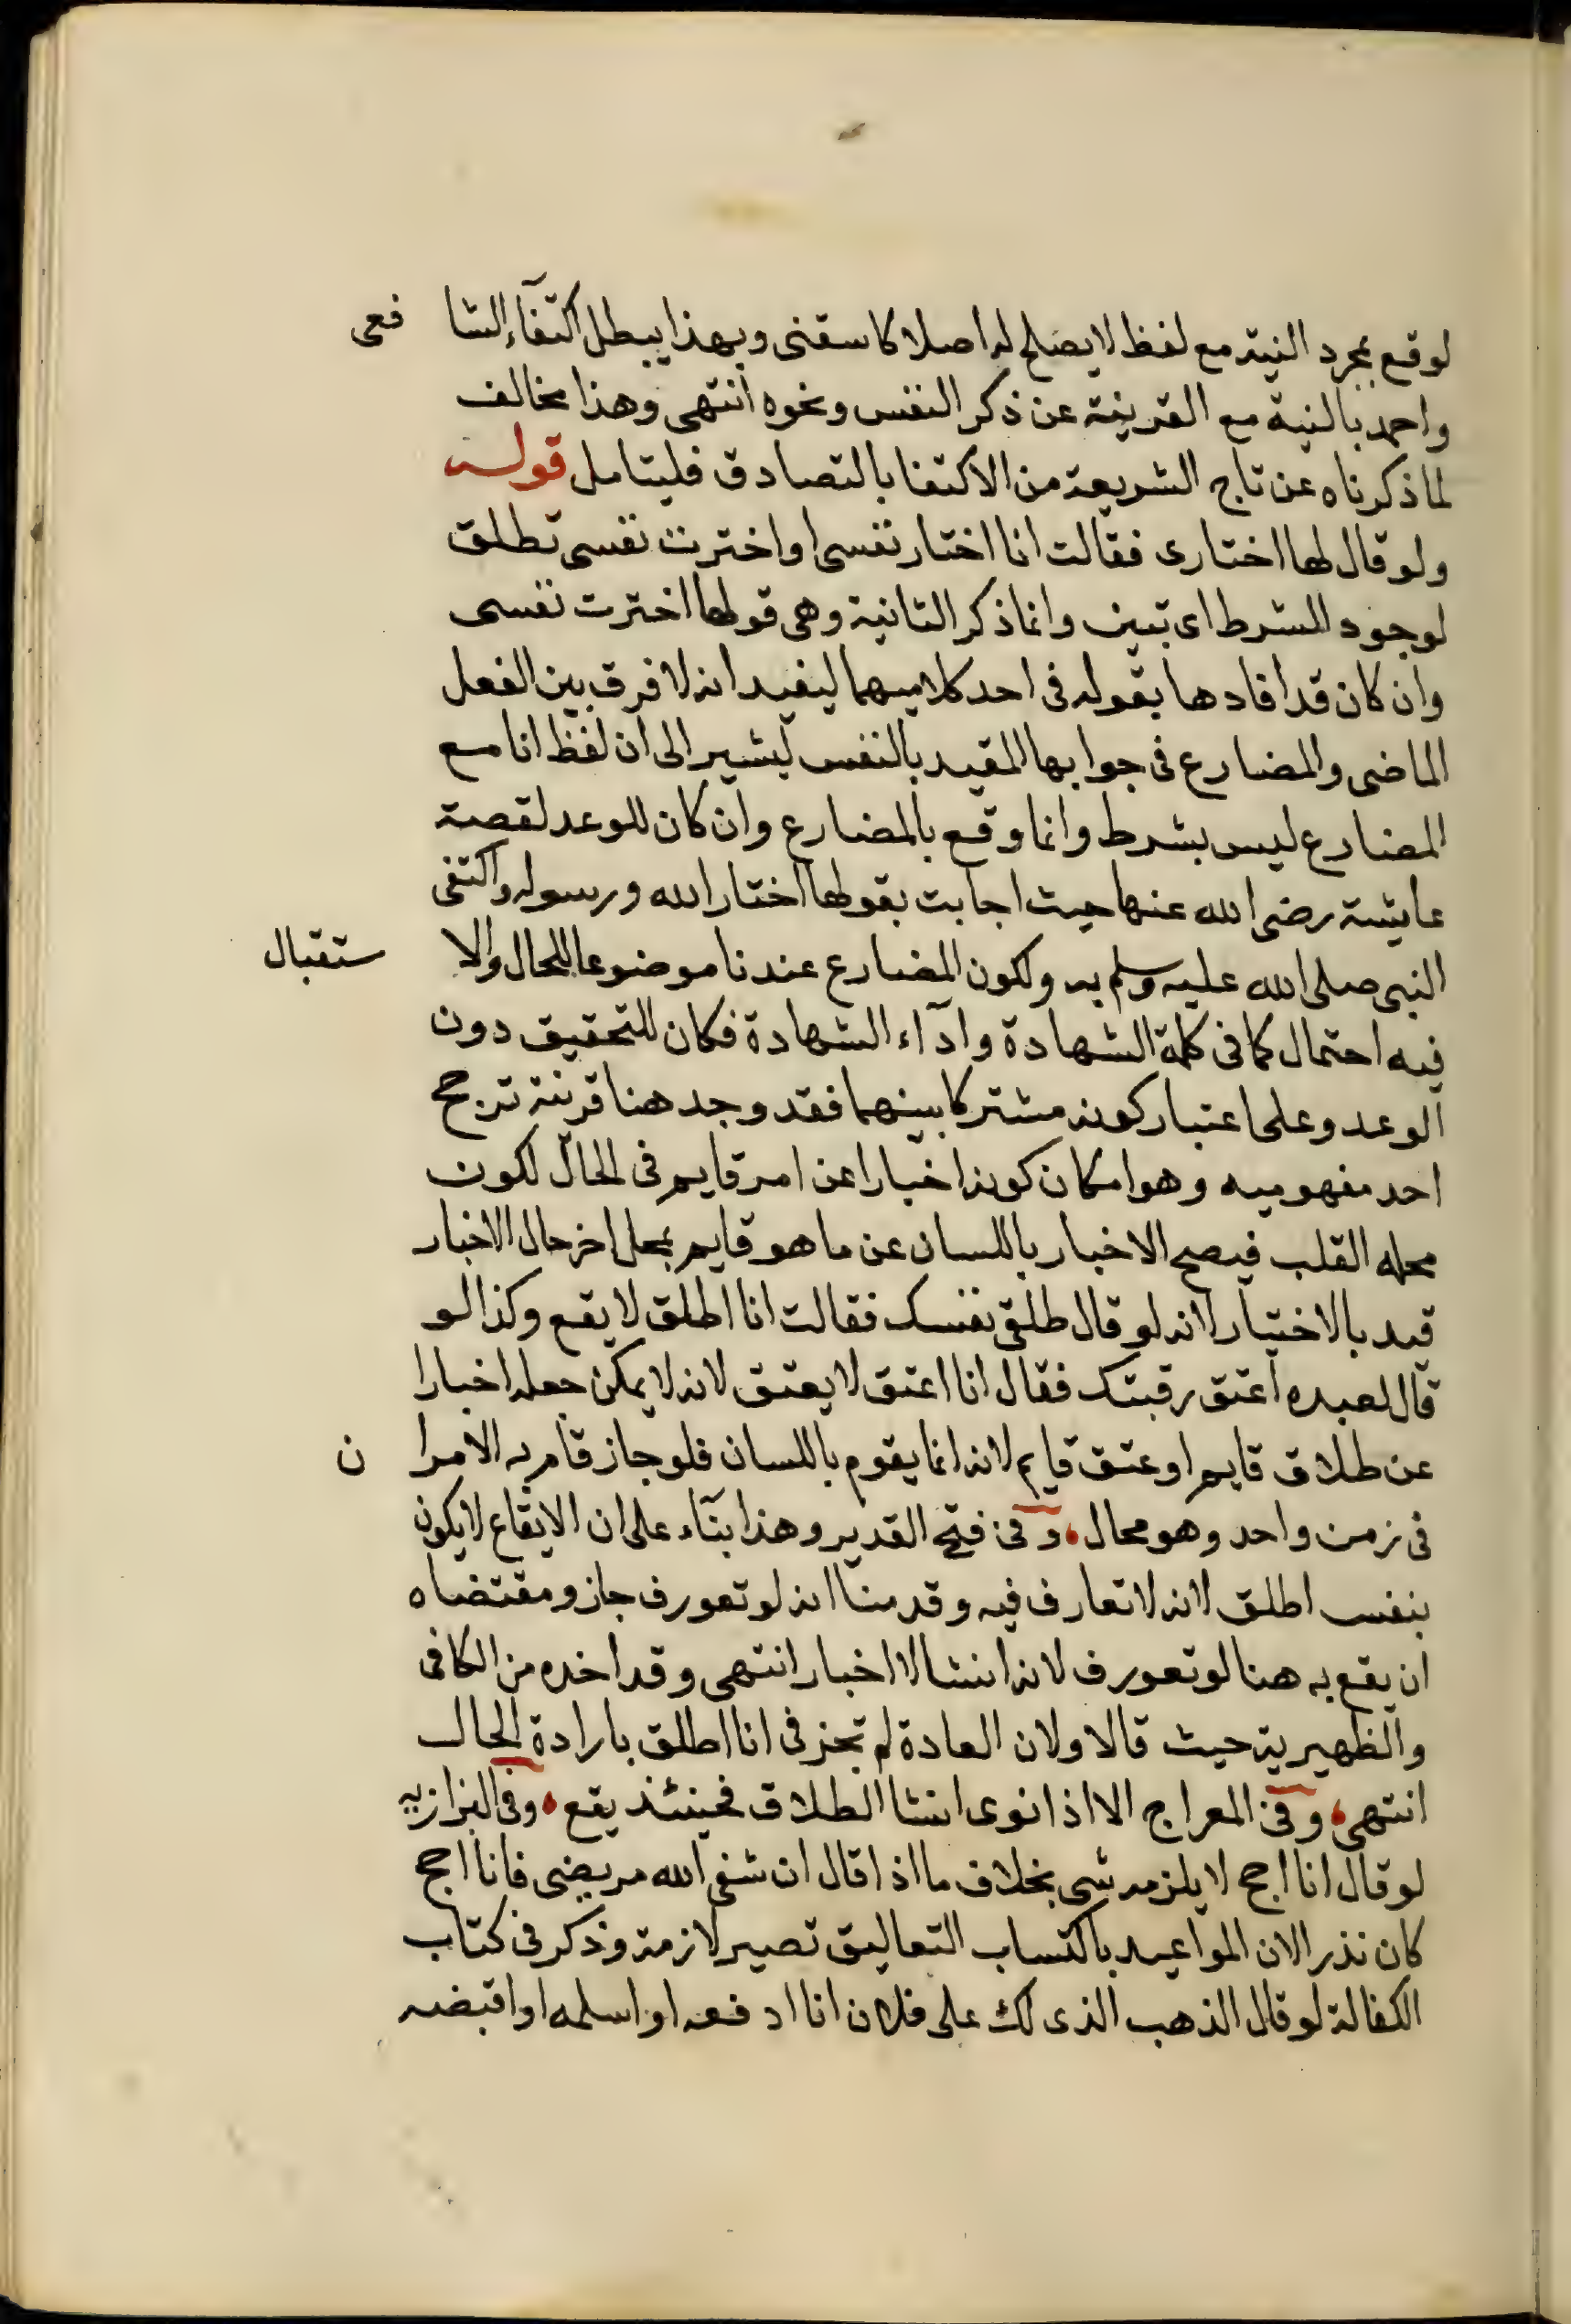 لوقع بمجرد النية مع لفظ لا يصلح له اصلا كاسقنى وبهذا يبطل اكتفآء الشا فعى
واحمد بالنية مع القرينة عن ذكر النفس ونحوه انتهى وهذا مخالف
لما ذكرناه عن تاج الشريعة من الاكتفا بالتصادق فليتامل قوله
ولو قال لها اختارى فقالت انا اختار نفسى او اخترت نفسى تطلق
لوجود الشرط اى تبين وانما ذكر الثانية وهى قولها اخترت نفسى
وان كان قد افادها بقوله فى احد كلاميهما ليفيد انه لا فرق بين الفعل
الماضى والمضارع فى جوابها المقيد بالنفس ليشير الى ان لفظ انا مع
المضارع ليس بشرط وانما وقع بالمضارع وان كان للوعد لقصة
عايشة رضى الله عنها حيث اجابت بقولها اختار الله ورسوله واكتفى
النبى صلى الله عليه وسلم به ولكون المضارع عندنا موضوعا للحال والا ستقبال
فيه احتمال كما فى كلمة الشهادة وادآء الشهادة فكان للتحقيق دون
الوعد وعلى اعتبار كونه مشتركا بينهما فقد وجد هنا قرينة ترجح
احد مفهوميه وهو امكان كونه اخبارا عن امر قايم فى الحال لكون
محله القلب فيصح الاخبار باللسان عن ما هو قايم بمحل اخر حال الاخبار
قيد بالاختيار لانه لو قال طلقى نفسك فقالت انا اطلق لا يقع وكذا لو
قال لعبده اعتق رقبتك فقال انا اعتق لا يعتق لانه لا يمكن جعله اخبارا
عن طلاق قايم او عتق قايم لانه انما يقوم باللسان فلو جاز قام به الامرا ن
فى زمن واحد وهو محال، وفى فتح القدير وهذا بنآء على ان الايقاع لا يكون
بنفس اطلق لانه لا تعارف فيه وقدمنا انه لو تعورف جاز ومقتضاه
ان يقع به هنا لو تعورف لانه انشا لا اخبار انتهى وقد اخده من الكافى
والظهيرية حيث قالا ولان العادة لم تجز فى انا اطلق بارادة الحال
انتهى، وفى المعراج الا اذا نوى انشا الطلاق فحينئذ يقع، وفى البزازيه
لو قال انا احج لا يلزمه شى بخلاف ما اذا قال ان شفى الله مريضى فانا احج
كان نذر الان المواعيد باكتساب التعاليق تصير لازمة وذكر فى كتاب
الكفالة لو قال الذهب الذى لك على فلان انا ادفعه او اسلمه او اقبضه